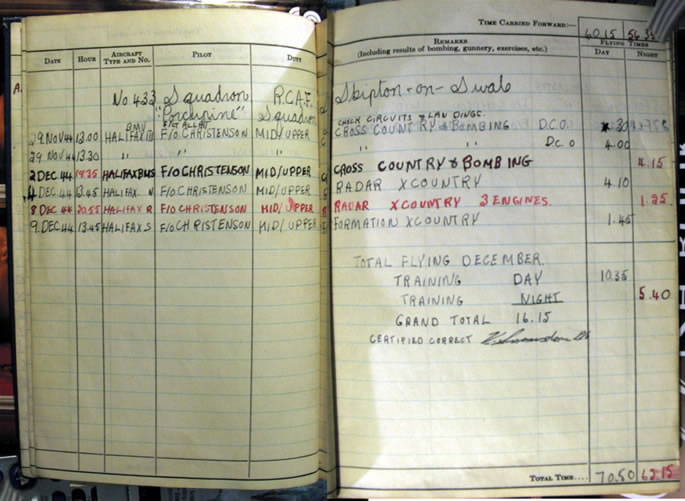 TIME CARRIED FORWARD:— 60.15 56.35
DATE HOUR AIRCRAFT TYPE AND No. PILOT DUTY
REMARKS (Including results of bombing, gunnery, exercises, etc.) FLYING TIMES
DAY NIGHT
No 433 Squadron R.C.A.F. Skipton-on-Swale
"Porcupine" Squadron
CHECK CIRCUITS & LANDINGS
29 NOV 44 13.00 HALIFAX F/O CHRISTENSON MID/UPPER CROSS COUNTRY & BOMBING D.C.O. .30
29 NOV 44 13.30 " " " " D.C.O 4.00
2 DEC 44 HALIFAX F/O CHRISTENSON MID/UPPER CROSS COUNTRY & BOMBING 4.15
4 DEC 44 13.45 HALIFAX F/O CHRISTENSON MID/UPPER RADAR X COUNTRY 4.10
8 DEC 44 20.55 HALIFAX R F/O CHRISTENSON MID/UPPER RADAR X COUNTRY 3 ENGINES. 1.25
9. DEC 44 13.45 HALIFAX S F/O CHRISTENSON MID/UPPER FORMATION X COUNTRY 1.45
TOTAL FLYING DECEMBER.
TRAINING DAY 10.35
TRAINING NIGHT 5.40
GRAND TOTAL 16.15
CERTIFIED CORRECT
TOTAL TIME.... 70.50 62.15